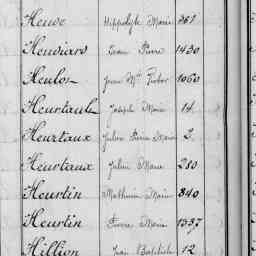 Heuse Hippolyte Marie 361
Heusiard Jean Pierre 1430
Heulot Jean Mie 1060
Heurtault Joseph Marie 14
Heurtaux Julien Pierre Marie 2
Heurtaux Julien Marie 280
Heurtin Mathurin Marie 840
Heurtin Pierre Marie 1337
Hillion Jean Baptiste 12